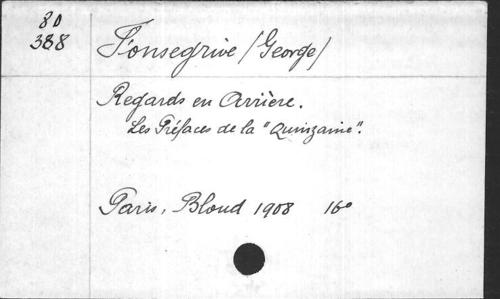 80
388
Fonsegrive (George)
Regards en Arrière.
Les Préfaces de la "Quinzaine".
Paris, Bloud 1908 16°